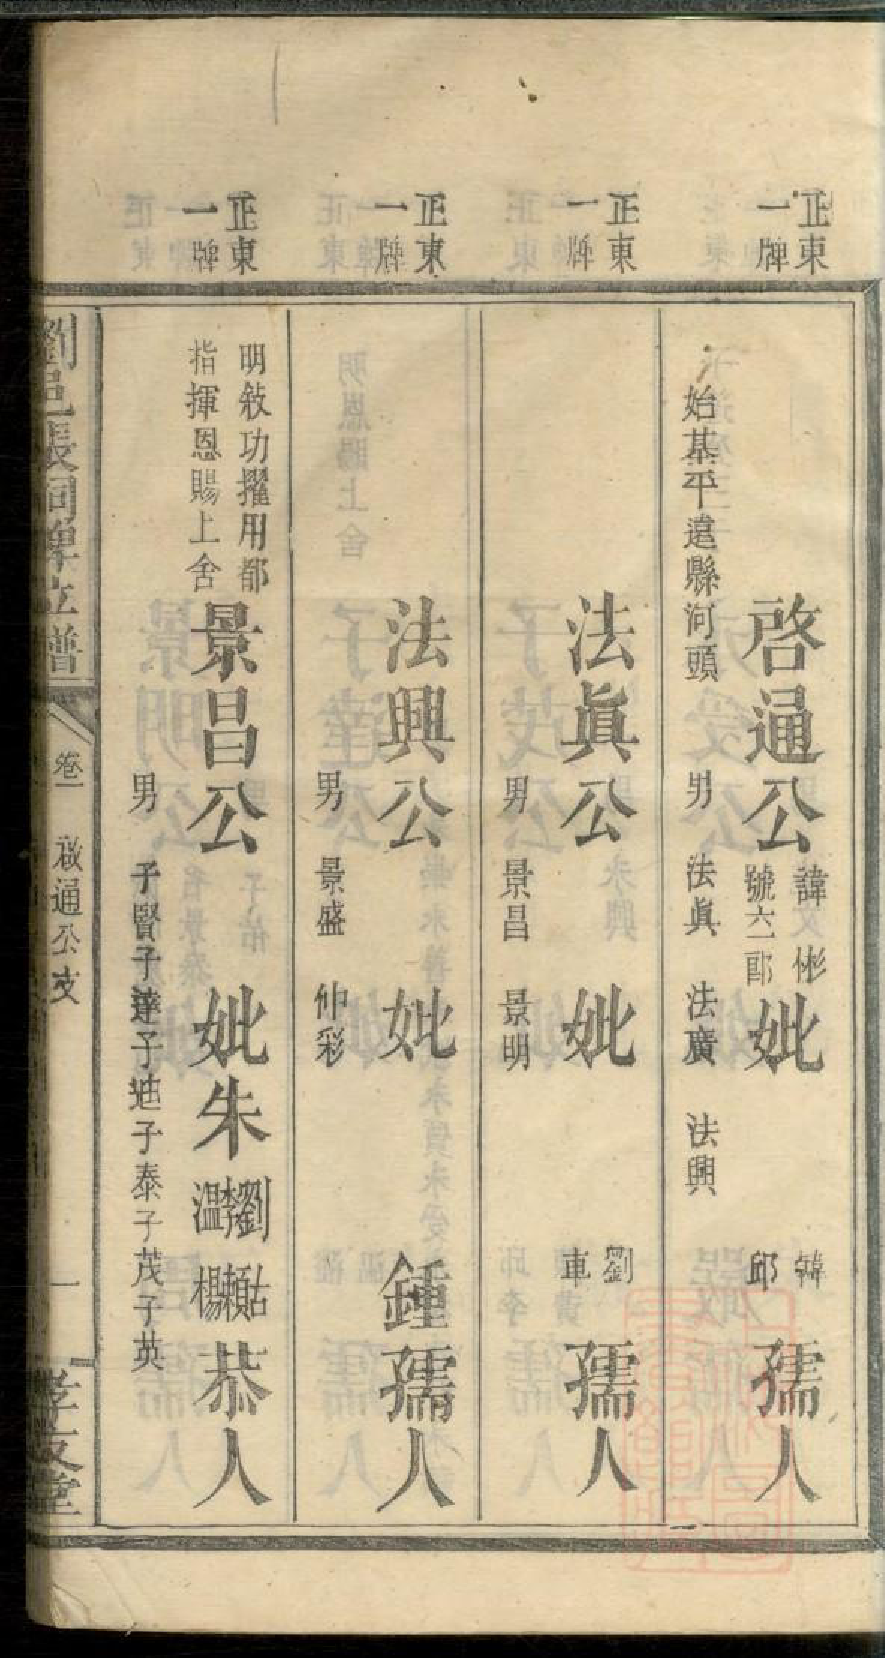 正東
一牌
始基平遠縣河頭
啓通公
諱彬
號六一郎
妣
韓
邱
孺人
男 法眞 法廣 法興
正東
一牌
法眞公
妣
劉
車
孺人
男 景昌 景明
正東
一牌
法興公
妣
鍾孺人
男 景盛 仲彩
正東
一牌
明敘功擢用都
指揮恩賜上舍
景昌公
妣朱
劉
李
溫
古
賴
楊
恭人
男 子賢子達子迪子泰子茂子英
劉邑張祠牌位譜
卷一
啟通公支
一
孝友堂